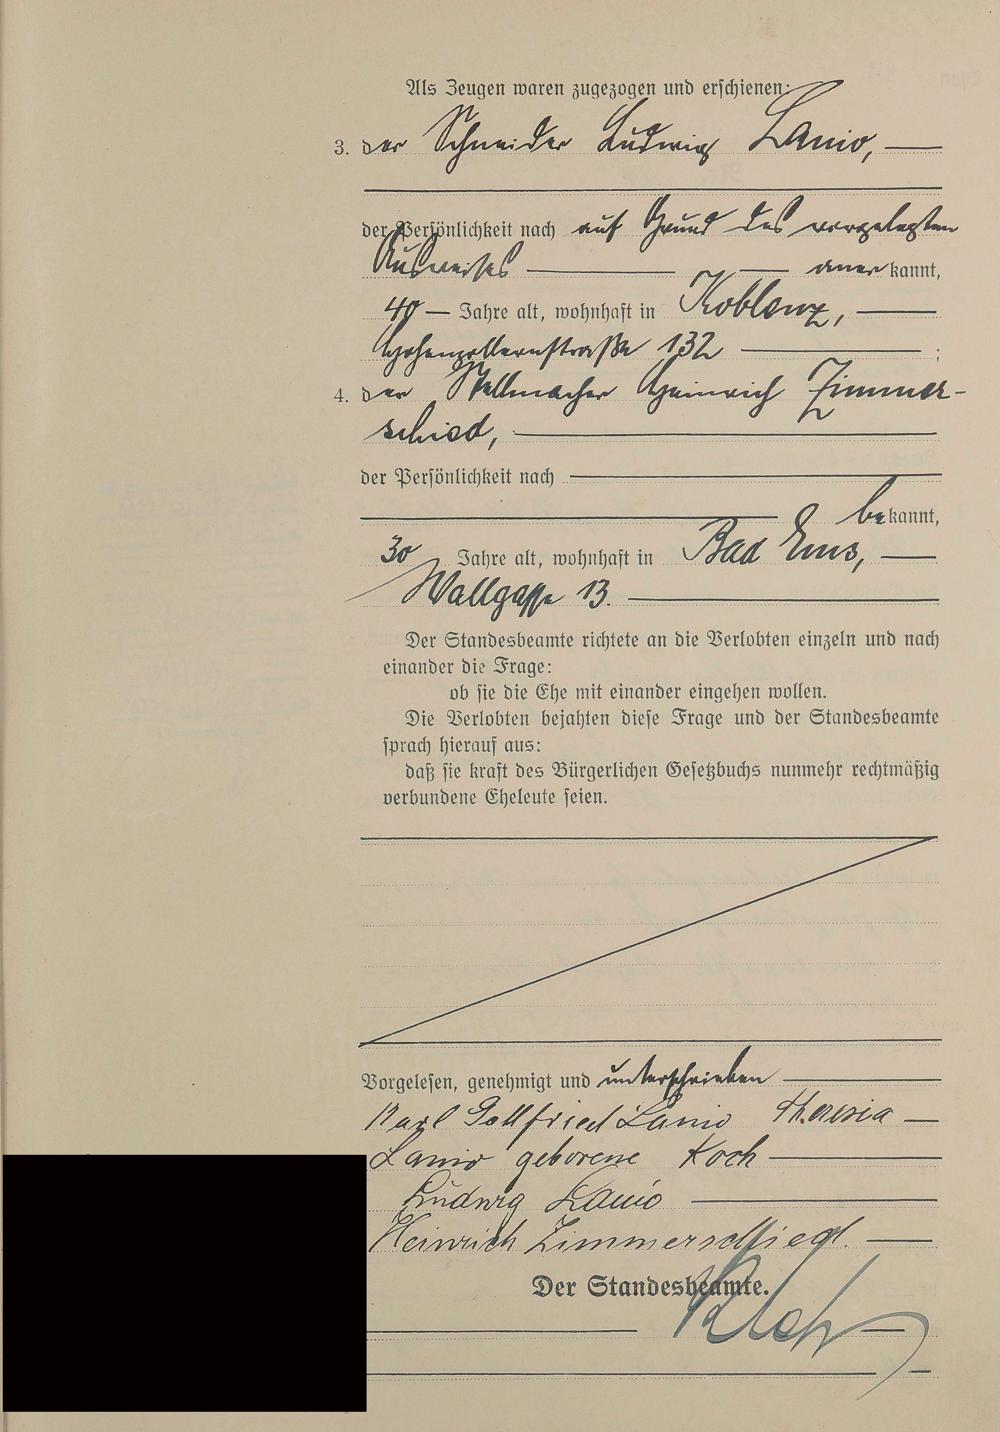 Als Zeugen waren zugezogen und erschienen:
3. der Schneider Ludwig Lanio,
der Persönlichkeit nach auf Grund des vorgelegten
Ausweises anerkannt,
49 Jahre alt, wohnhaft in Koblenz,
Hohenzollernstraße 132 ;
4. der Stellmacher Heinrich Zimmer-
schied,
der Persönlichkeit nach
bekannt,
30 Jahre alt, wohnhaft in Bad Ems,
Wallgasse 13.
Der Standesbeamte richtete an die Verlobten einzeln und nach
einander die Frage:
ob sie die Ehe mit einander eingehen wollen.
Die Verlobten bejahten diese Frage und der Standesbeamte
sprach hierauf aus:
daß sie kraft des Bürgerlichen Gesetzbuchs nunmehr rechtmäßig
verbundene Eheleute seien.
Vorgelesen, genehmigt und unterschrieben
Karl Gottfried Lanio Theresia
Lanio geborene Koch
Ludwig Lanio
Heinrich Zimmerschied.
Der Standesbeamte.